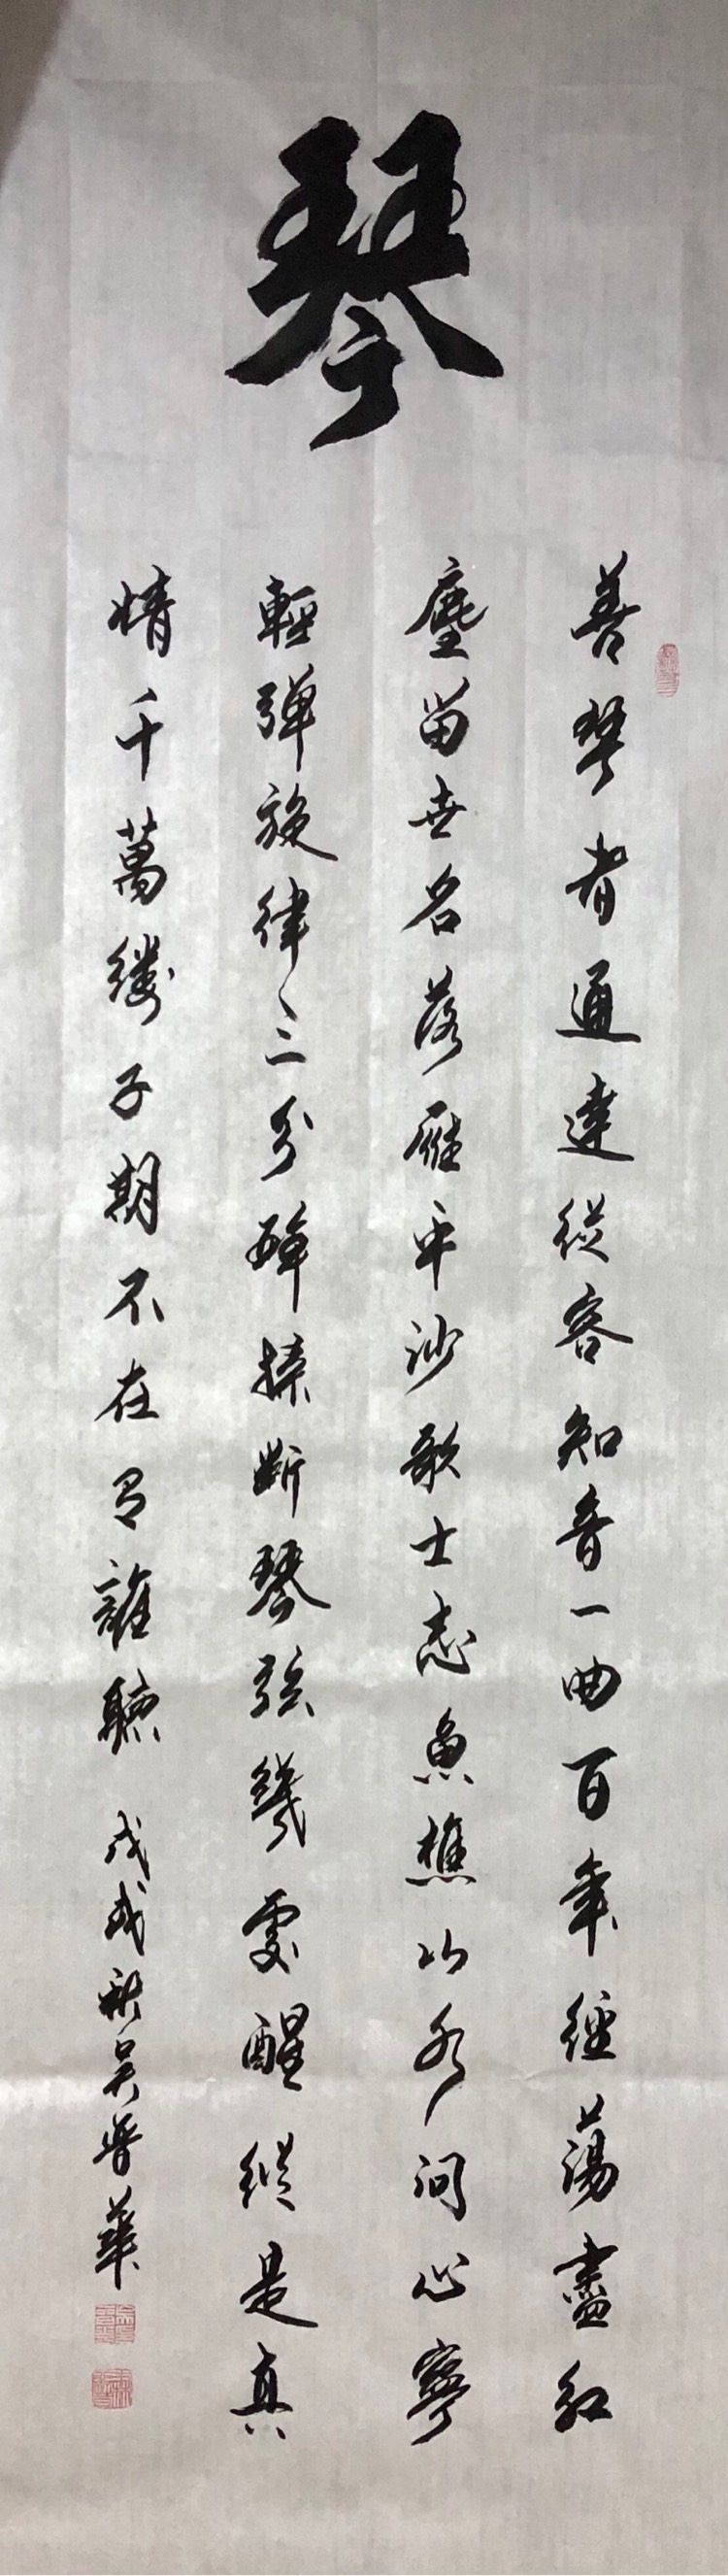 琴
善琴者通達從容知音一曲百年經蕩盡紅
塵留世名落雁平沙歌士志魚樵山水問心寧
輕彈旋律三分醉揉断琴弦幾處醒縱是真
情千萬縷子期不在有誰聽
戊戌秋吴晋華